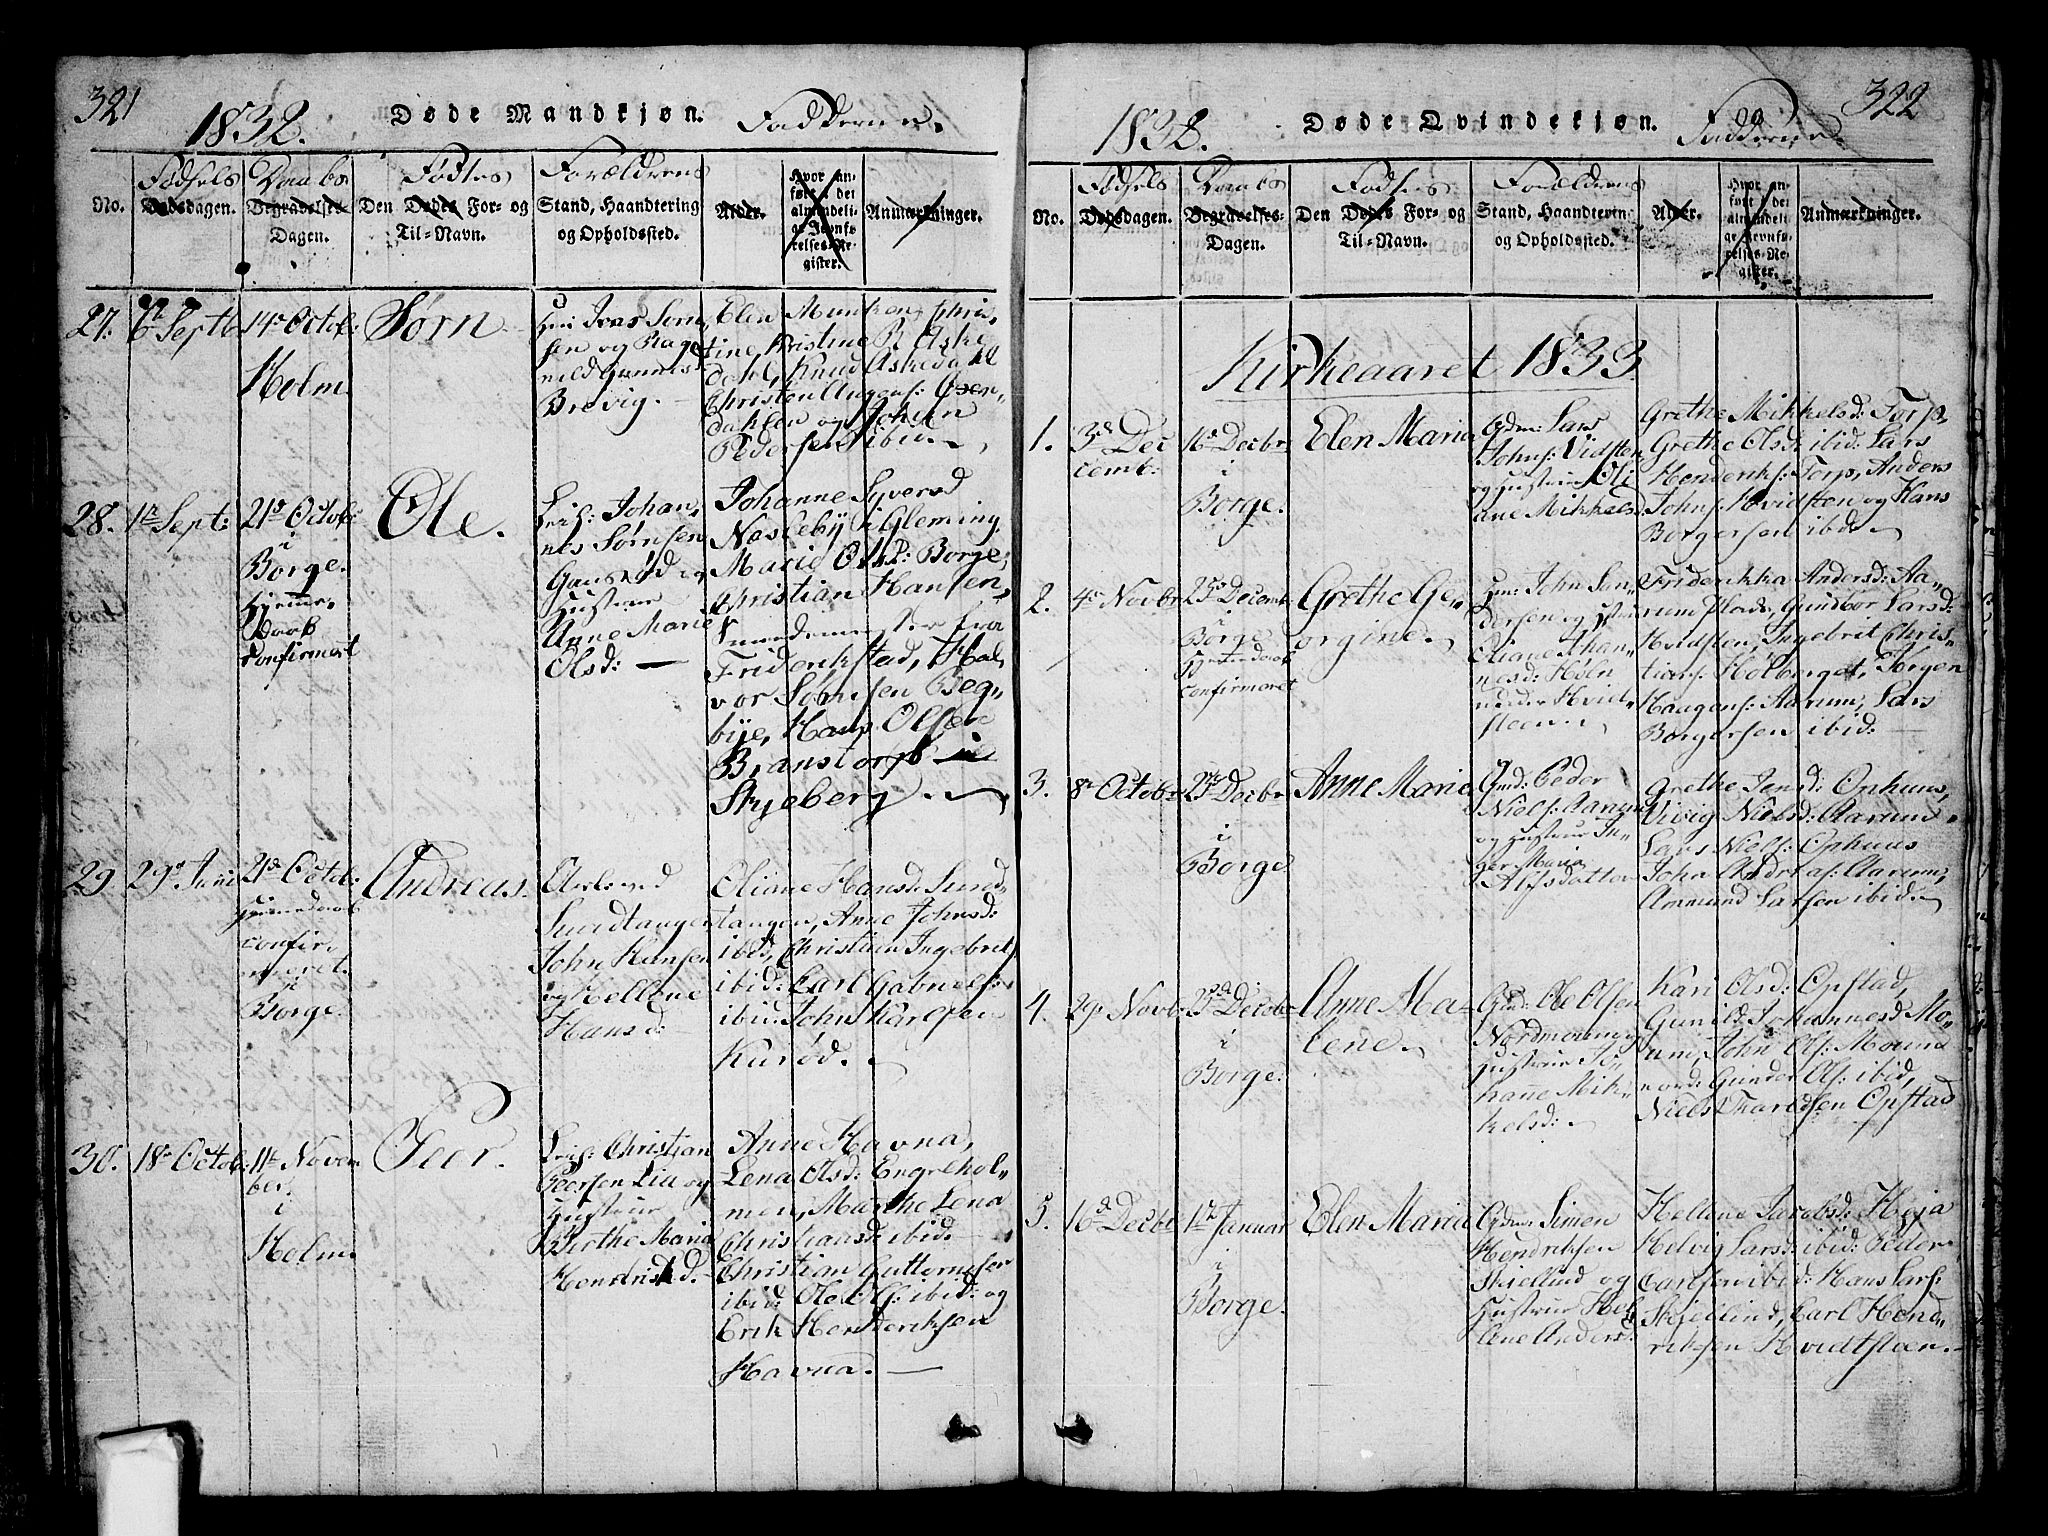 321
1832. Døde Mandkjøn. Faddere
No.
Fødsels
Dødsdagen.
Daabs
Begravelses-
Dagen.
Fødtes
Den Dødes For- og
Til-Navn.
Forældrens
Stand, Haandtering
og Opholdssted.
Alder.
Hvor an-
ført i det
almindeli-
ge Jevnfø-
relses-Re-
gister.
Anmærkninger.
27.
14de Octob:
Holm
Sørn
sen og Rag
Brevig.
Elen Munken, Chris,
tine, Kristine
dahl, Knud Askedahl
dahlen og Johan
Pedersen ibid:
28.
1ste Sept:
21de Octob:
i
Borge.
Hjemme,
daab
Confirmert
Ole.
Leil: Johan,
nes Sørnsen
Hustrue
Anne Marie
Olsd:
Johanne Syversd
Nasleby i Gleming
Marie Olsd: Borge,
Christian Hansen,
fra
Friderikstad, Hal,
vor Sørnsen Beg,
bye, Hans Olsen
Branstorp i
Skjeberg.
29.
29de Juni
21de Octob:
Hjemmedaab
Confir,
meret
i
Borge.
Andreas.
Sundtangen
John Hansen
og Hellene
Hansd:
Oliane Hansd: Sund,
tangen, Anne Johnsd:
ibid, Christian Ingebrit
ibid: Carl Gabriels:
ibid: John Karlsen
Kurød.
30.
18de Octob:
11te Novem
ber.
i
Holm.
Peer.
Leil: Christian
Peersen Lia og
Hustrue
Birthe Maria
Anne Havna,
Lena Olsd: Engrehol,
men, Marthe Lena
Christiansd: ibid.
Christian Guttormsen
ibid: Ole Ols: ibid: og
Erik Henderiksen
Havna.
322
1832. Døde Qvindekjøn. Faddere
No.
Fødsels
Dødsdagen.
Daabs
Begravelses-
Dagen.
Fødtes
Den Dødes For- og
Til-Navn.
Forældrens
Stand, Haandterin-
og Opholdssted.
Alder.
Hvor an-
ført i det
almindeli-
ge Jevnfø-
relses-Re-
gister.
Anmærkninger.
Kirkeaaret 1833.
1.
3de De
cemb:
16de Decbr
i
Borge.
Elen Maria
Lars
Johns: Vidsten
og Hustrue Oli
ane Mikkelsd
Grethe Mikkelsd: Torp,
Grethe Olsd: ibid: Lars
Henderiks: Torp, Anders
Johns: Hvidsten og Hans
Borgersen ibid.
2.
4de Novbr
25de Decemb
i
Borge
Hjemmedaab
Confirmeret
Grethe Ge,
orgine.
John
dersen og Hustrue
Oliane Johan,
nesd:
under Hvid,
steen.
Friderikka Andersd: Aa,
rum Gundbor Larsd:
Hvidsten, Ingebrit Chris,
tians: Holberget, Jørgen
Haagens: Aarum, Lars
Borgersen ibid:
3.
8de Octobr
Decbr
i
Borge
Anne Marie
Gmd: Peder
Niels: Aarum
og Hustrue In,
ger Maria
Alfsdatter
Grethe Jensd: Ophuus,
Nielsd: Aarum
Lars Niels: Ophuus
John Aarum,
Ammund Larsen ibid.
4.
29de Novb:
25de Decbr
i
Borge.
Anne Ma,
lene.
Gmd: Ole Olsen
Nordmoum og
Hustrue Jo,
hane Mik,
kelsd:
Kari Olsd: Opstad,
Gunild Johannesd Mo,
um, John Ols: Moum
nord: Gunder Ols: ibid,
Niels Opstad
5.
16de Decbr
1ste Januar
i
Borge.
Elen Maria
Simen
Hendriksen
Skjellind og
Hustrue Hel
lene Anders:
Hellene Jacobsd: Heia
Helvig Larsd: ibid: Peder
Carlsen ibid: Hans Lars:
Skjellind, Carl Hend,
riksen Hvidtsten.